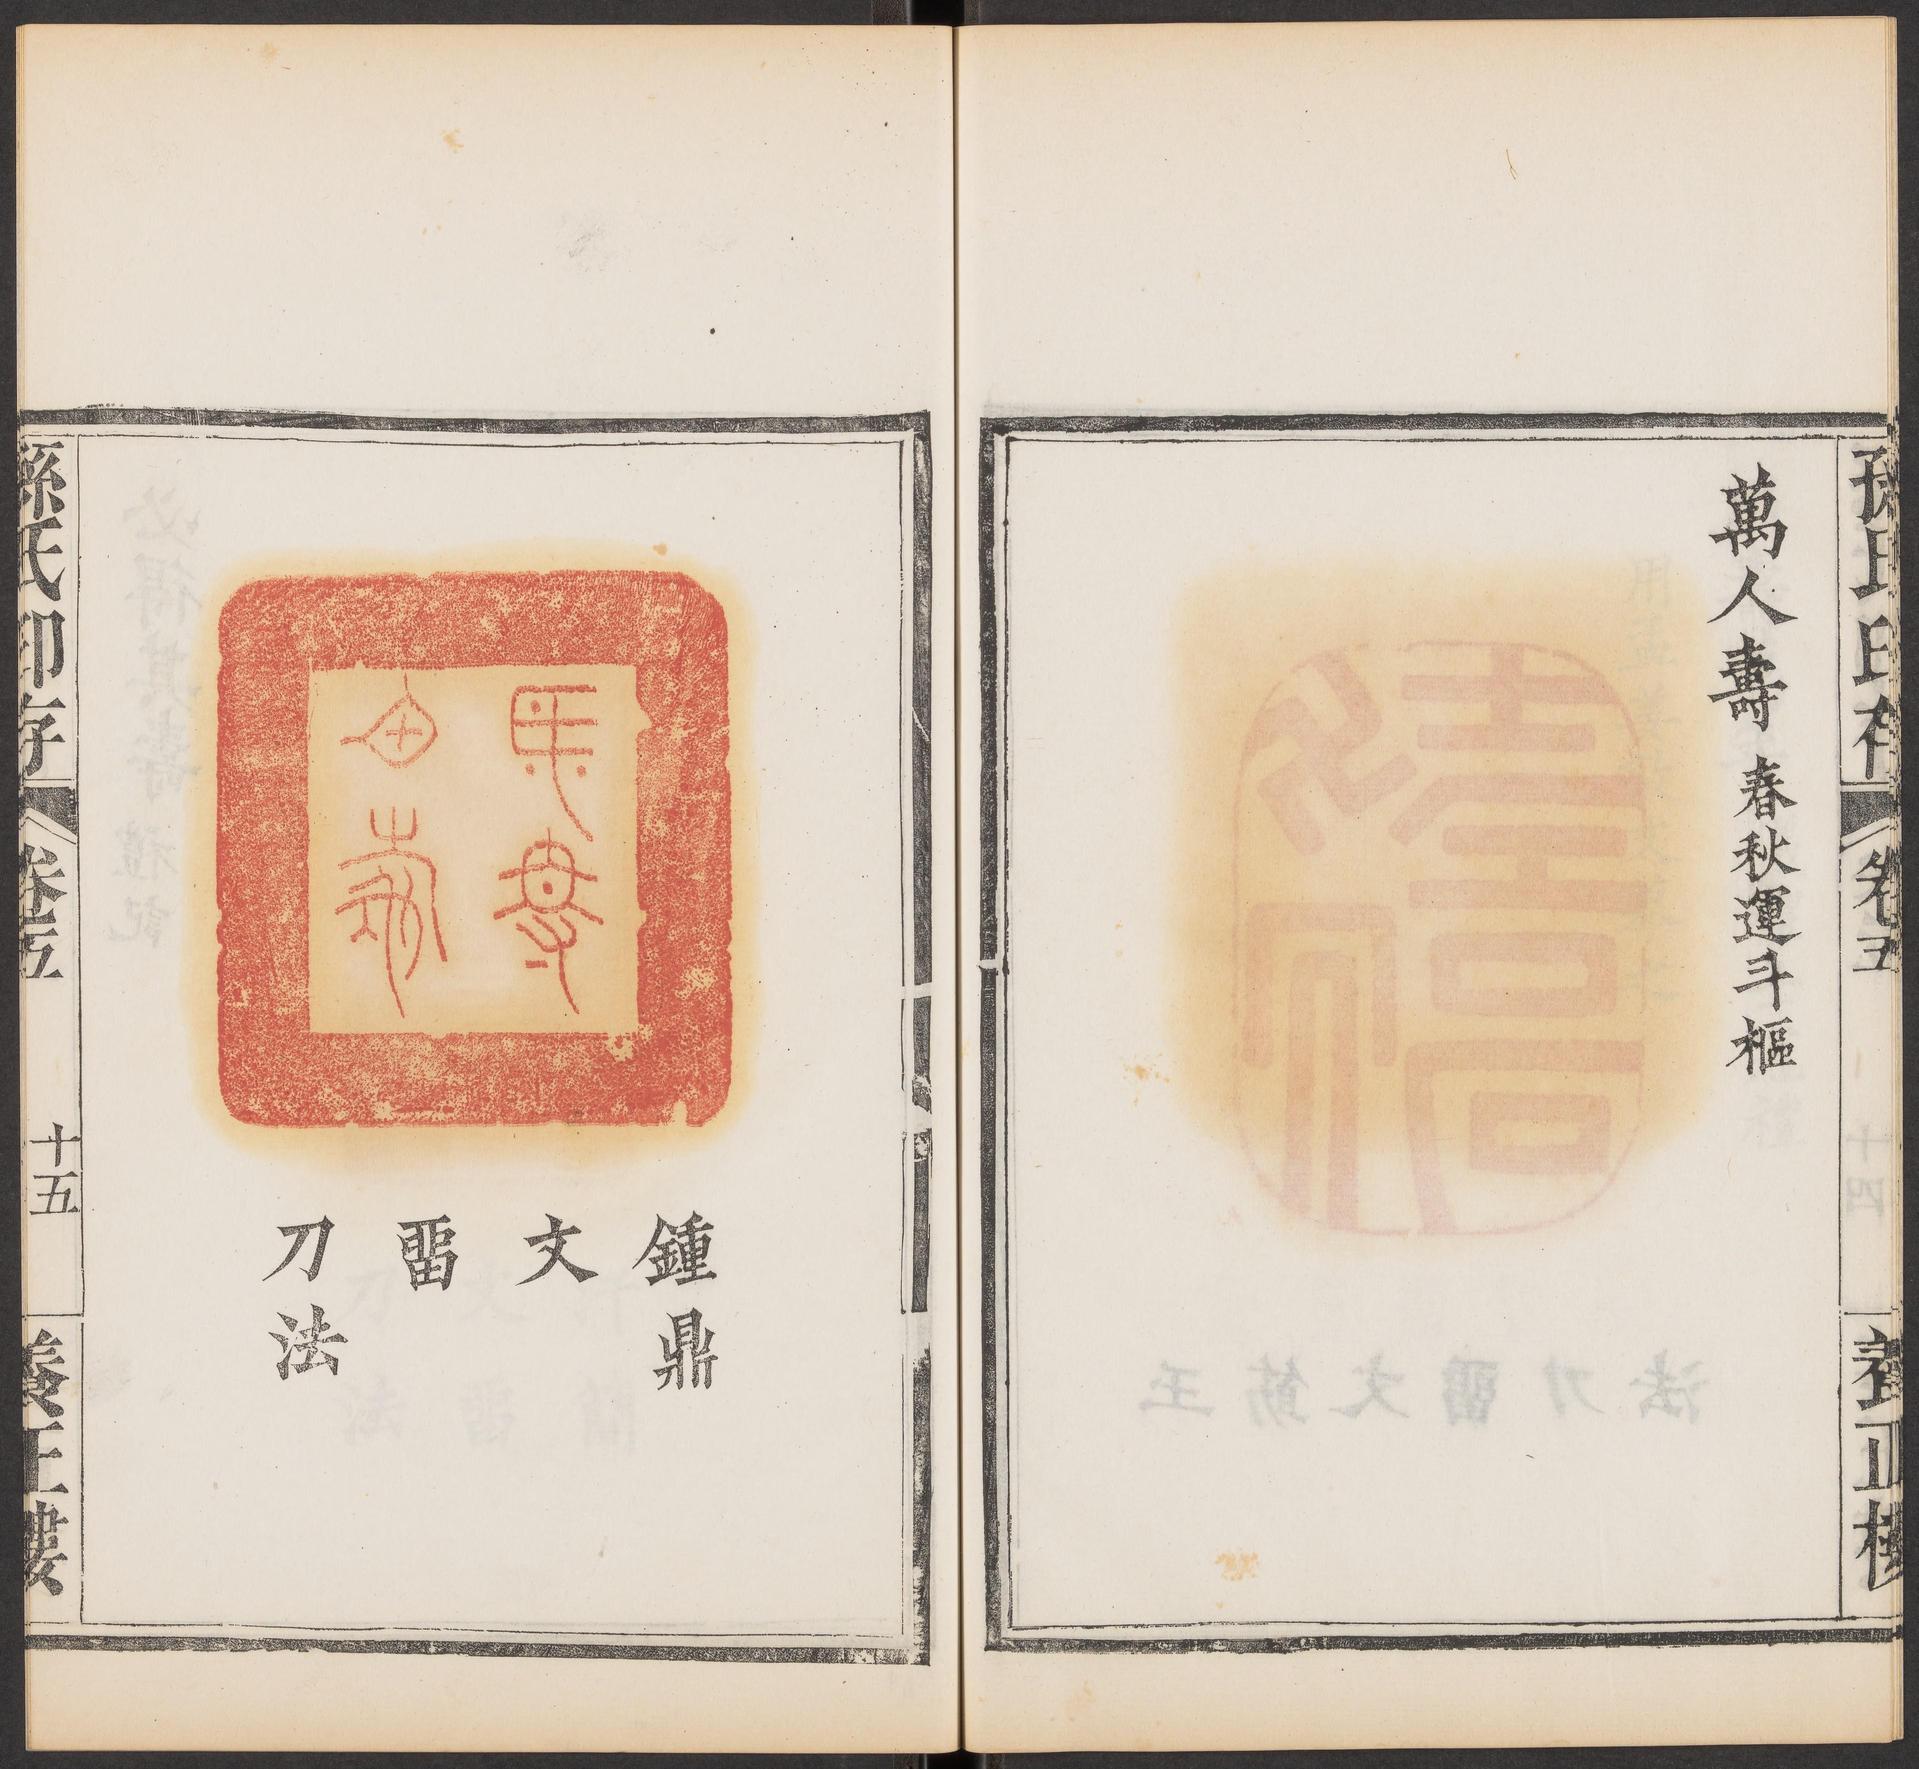 孫氏印存
卷五
養正樓
萬人壽 春秋運斗樞
鍾鼎
文
畱
刀法
孫氏印存
卷五
十五
養正樓